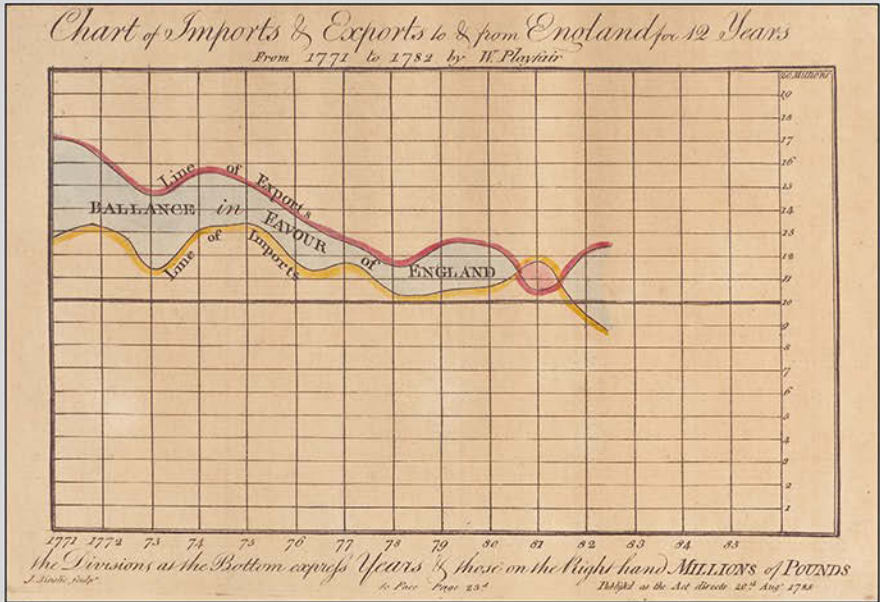 Chart of Imports & Exports to & from England for 12 Years
From 1771 to 1782 by W. Playfair
20 Millions
19
18
17
16
15
14
13
12
11
10
9
8
7
6
5
4
3
2
1
Line of Exports
BALLANCE in FAVOUR of ENGLAND
Line of Imports
1771 1772 73 74 75 76 77 78 79 80 81 82 83 84 85
the Divisions at the Bottom express Years & those on the Right hand MILLIONS of POUNDS
J. Ainslie sculpt.
to Face Page 23d
Publish'd as the Act directs 20th Augt 1785